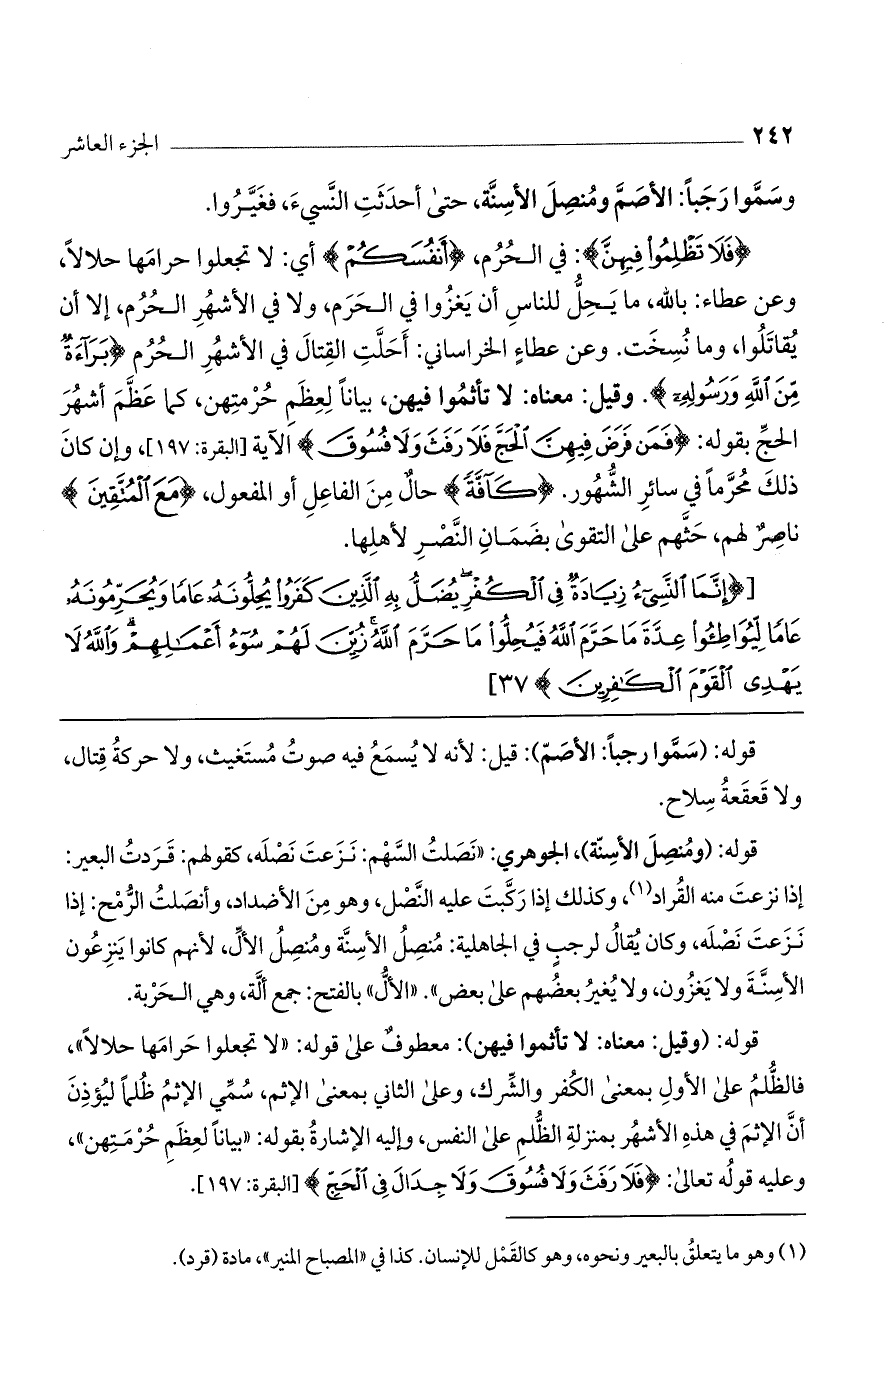 ٢٤٢ الجزء العاشر
وسَمَّوا رَجَباً: الأصَمَّ ومُنصِلَ الأسِنَّة، حتىٰ أحدَثَتِ النَّسيءَ، فغَيَّروا.
﴿فَلَا تَظْلِمُوا۟ فِيهِنَّ﴾: في الـحُرُم، ﴿أَنفُسَكُمْ﴾ أي: لا تجعلوا حرامَها حلالاً،
وعن عطاء: بالله، ما يَـحِلُّ للناسِ أن يَغزُوا في الـحَرَم، ولا في الأشهُرِ الـحُرُم، إلا أن
يُقاتَلُوا، وما نُسِخَت. وعن عطاءٍ الخراساني: أَحَلَّتِ القِتالَ في الأشهُرِ الـحُرُم ﴿بَرَآءَةٌ
مِّنَ ٱللَّهِ وَرَسُولِهِۦٓ﴾. وقيل: معناه: لا تأثمُوا فيهن، بياناً لِعِظَمِ حُرْمتِهن، كما عَظَّمَ أشهُرَ
الحجِّ بقوله: ﴿فَمَن فَرَضَ فِيهِنَّ ٱلْحَجَّ فَلَا رَفَثَ وَلَا فُسُوقَ﴾ الآية [البقرة: ١٩٧]، وإن كانَ
ذلكَ مُحَرَّماً في سائرِ الشُّهُور. ﴿كَآفَّةً﴾ حالٌ مِنَ الفاعِلِ أو المفعول، ﴿مَعَ ٱلْمُتَّقِينَ﴾
ناصِرٌ لهم، حَثَّهم علىٰ التقوىٰ بضَمَـانِ النَّصْرِ لأهلِها.
[﴿إِنَّمَا ٱلنَّسِىٓءُ زِيَادَةٌ فِى ٱلْكُفْرِ ۖ يُضَلُّ بِهِ ٱلَّذِينَ كَفَرُوا۟ يُحِلُّونَهُۥ عَامًا وَيُحَرِّمُونَهُۥ
عَامًا لِّيُوَاطِـُٔوا۟ عِدَّةَ مَا حَرَّمَ ٱللَّهُ فَيُحِلُّوا۟ مَا حَرَّمَ ٱللَّهُ ۚ زُيِّنَ لَهُمْ سُوٓءُ أَعْمَـٰلِهِمْ ۗ وَٱللَّهُ لَا
يَهْدِى ٱلْقَوْمَ ٱلْكَـٰفِرِينَ﴾ ٣٧]
قوله: (سَمَّوا رجباً: الأصَمّ): قيل: لأنه لا يُسمَعُ فيه صوتُ مُستَغيث، ولا حركةُ قِتال،
ولا قَعقَعةُ سِلاح.
قوله: (ومُنصِلَ الأسِنّة)، الجوهري: «نَصَلتُ السَّهْم: نَـزَعتَ نَصْلَه، كقولهم: قَـرَدتُ البعير:
إذا نزعتَ منه القُراد(١)، وكذلك إذا رَكَّبتَ عليه النَّصْل، وهو مِنَ الأضداد، وأنصَلتُ الرُّمْح: إذا
نَـزَعتَ نَصْلَه، وكان يُقالُ لرجبٍ في الجاهلية: مُنصِلُ الأسِنَّة ومُنصِلُ الألِّ، لأنهم كانوا يَنزِعُون
الأسِنَّـةَ ولا يَغزُون، ولا يُغيرُ بعضُهم علىٰ بعض». «الألُّ» بالفتح: جمع ألَّة، وهي الـحَرْبة.
قوله: (وقيل: معناه: لا تأثموا فيهن): معطوفٌ علىٰ قوله: «لا تجعلوا حَرامَها حلالاً»،
فالظُّلمُ علىٰ الأولِ بمعنىٰ الكُفر والشِّرك، وعلىٰ الثاني بمعنىٰ الإثم، سُمِّي الإثمُ ظُلماً ليُؤذِنَ
أنَّ الإثمَ في هذهِ الأشهُر بمنزلةِ الظُّلمِ علىٰ النفس، وإليه الإشارةُ بقوله: «بياناً لعِظَمِ حُرْمَـتِهن»،
وعليه قولُه تعالىٰ: ﴿فَلَا رَفَثَ وَلَا فُسُوقَ وَلَا جِدَالَ فِى ٱلْحَجِّ﴾ [البقرة: ١٩٧].
(١) وهو ما يتعلقُ بالبعير ونحوه، وهو كالقَمْل للإنسان. كذا في «المصباح المنير»، مادة (قرد).